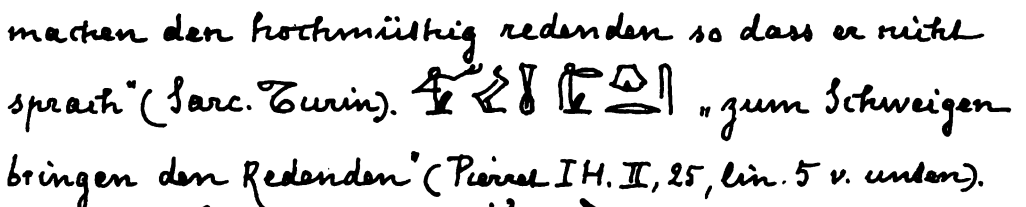 machen den hochmüthig redenden so dass er nicht
sprach" (Sarc. Turin). „zum Schweigen
bringen den Redenden" (Pierret I H. II, 25, lin. 5 v. unten).